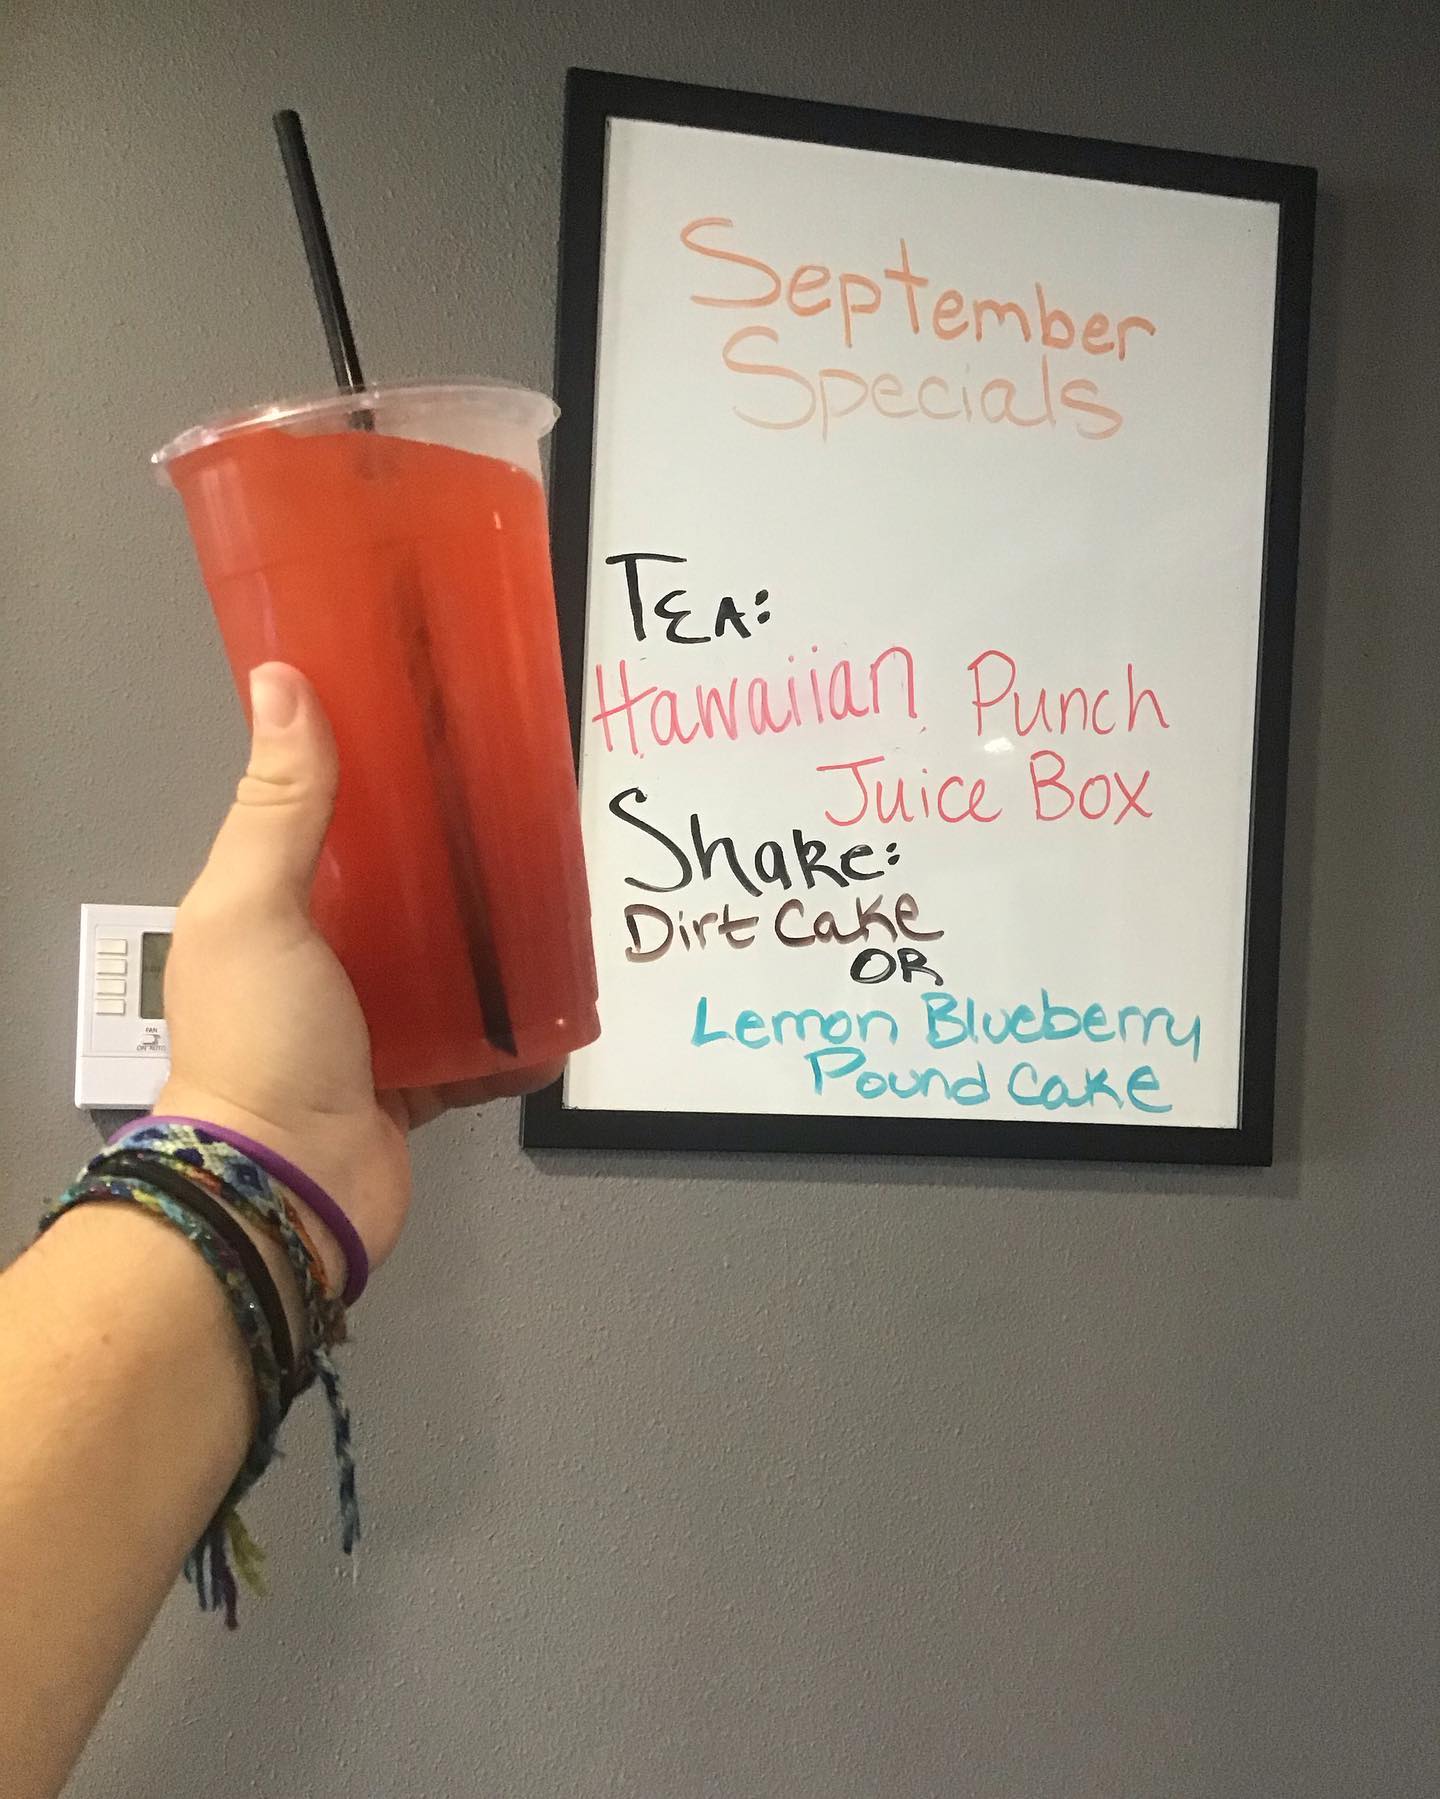 September
Specials
TEA:
Hawaiian Punch
Juice Box
Shake:
Dirt Cake
OR
Lemon Blueberry
Pound Cake
FAN
ON AUTO